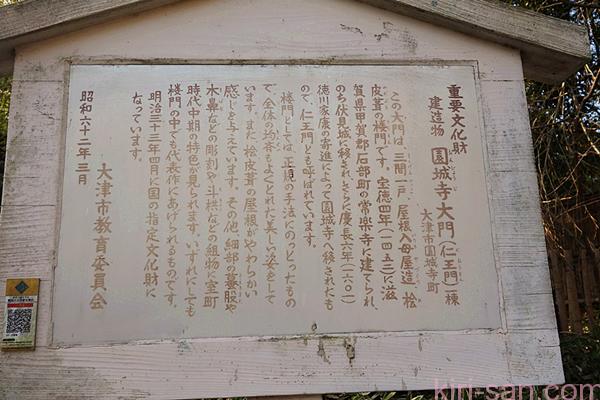 重要文化財
建造物 園城寺大門(仁王門)一棟
大津市園城寺町
この大門は、三間一戸、屋根入母屋造、桧
皮葺の楼門です。宝徳四年(一四五二)に滋
賀県甲賀郡石部町の常楽寺に建てられ、
のち伏見城に移されさらに慶長六年(一六〇一)
徳川家康の寄進によって園城寺へ移されたも
ので、仁王門とも呼ばれています。
楼門としては、正規の手法にのっとったもの
で、全体の均斉もよくとれた美しい姿をして
います。また、桧皮葺の屋根がやわらかい
感じを与えています。その他、細部の蟇股や
木鼻などの彫刻や斗栱などの組物に室町
時代中期の特色が見られます。いずれにしても
楼門の中でも代表作にあげられるものです。
明治三十三年四月に国の指定文化財に
なっています。
大津市教育委員会
昭和六十二年三月
kiri-san.com